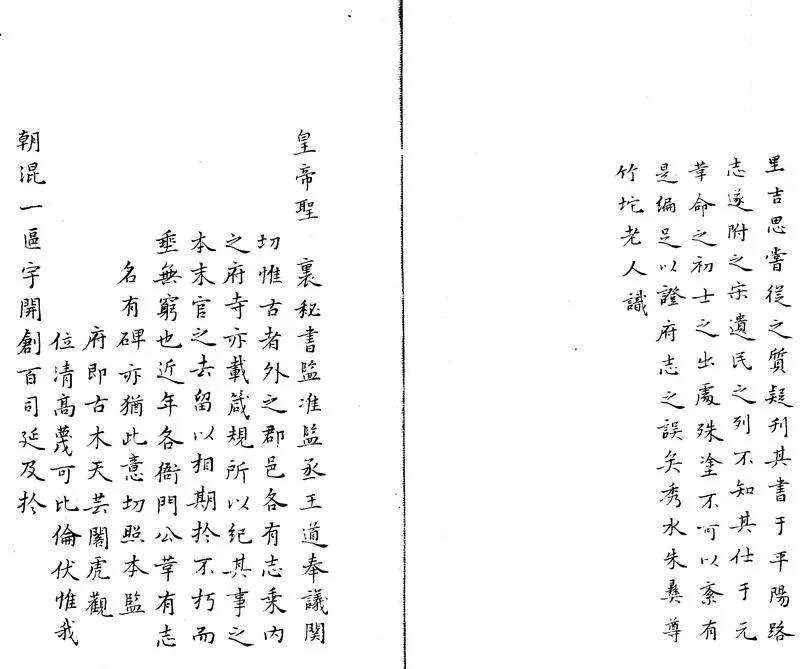 里吉思嘗從之質疑刋其書于平陽路
志遂附之宋遺民之列不知其仕于元
革命之初士之出處殊塗不可以紊有
是編足以證府志之誤矣秀水朱彝尊
竹垞老人識
皇帝聖 裏秘書監准監丞王道奉議関
切惟古者外之郡邑各有志乘内
之府寺亦載箴規所以紀其事之
本末官之去留以相期於不朽而
垂無窮也近年各衙門公革有志
名有碑亦猶此意切照本監
府即古木天芸閣虎觀
位清高蔑可比倫伏惟我
朝混一區宇開創百司延及扵